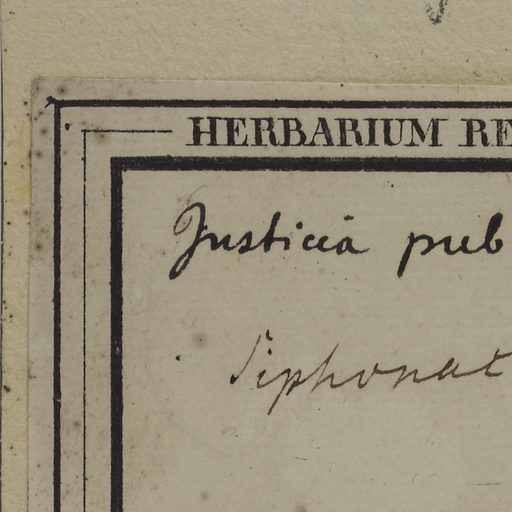 HERBARIUM RE
Justicia pub
Siphonat